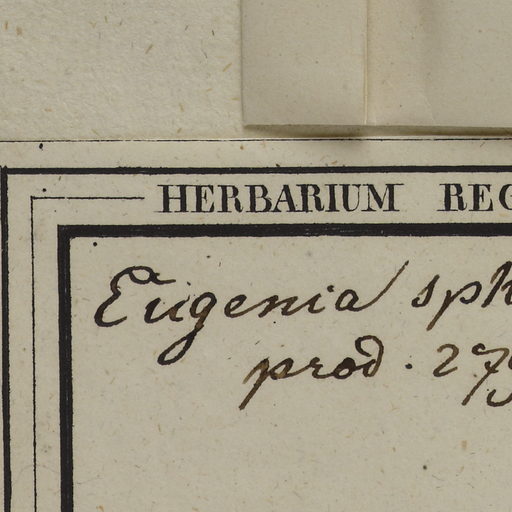 HERBARIUM REG
Eugenia sph
prod. 279